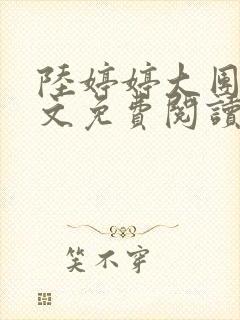 陸婷婷大圍
文免費閱讀
笑不穿